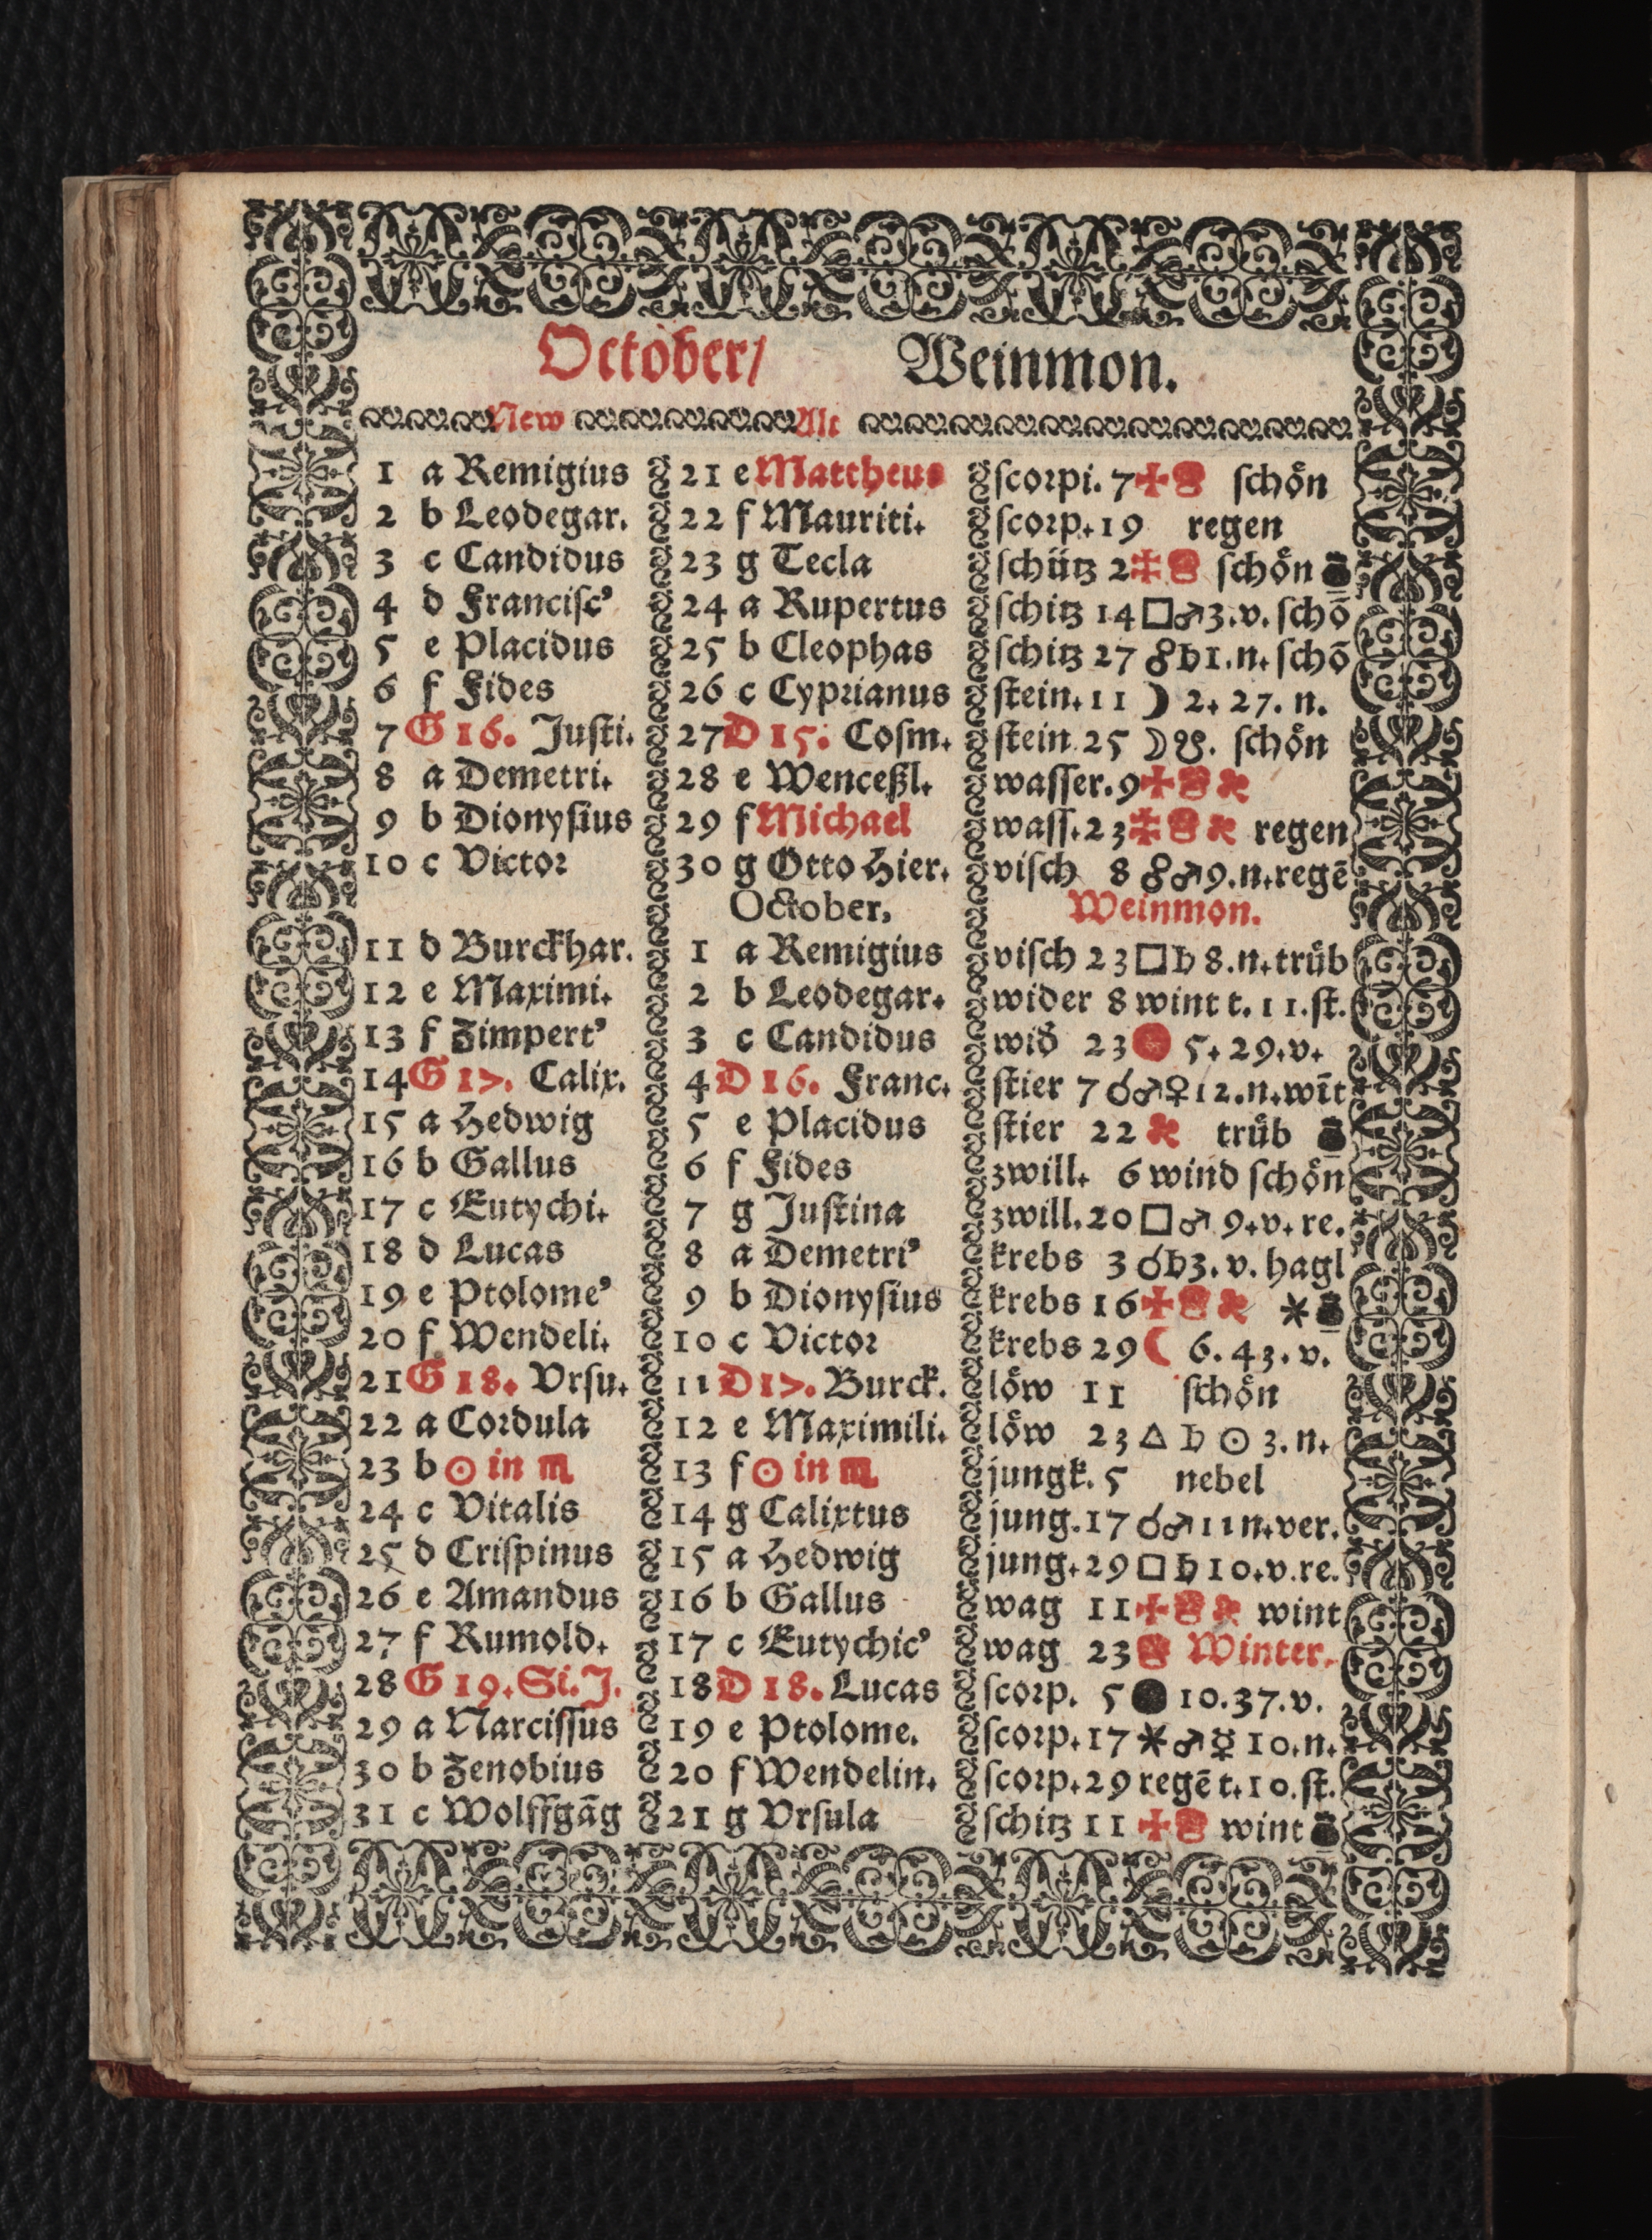 October/ Weinmon.
New Alt
1 a Remigius 21 e Mattheus scorpi. 7 ✠ schoͤn
2 b Leodegar. 22 f Mauriti. scorp. 19 regen
3 c Candidus 23 g Tecla schütz 2 schoͤn
4 d Franciſcꝰ 24 a Rupertus schitz 14 □♂ 3. v. schō
5 e Placidus 25 b Cleophas schitz 27 ☍♄ 1. n. schō
6 f Fides 26 c Cyprianus stein. 11 ☽ 2. 27. n.
7 G 16. Juſti. 27 D 15. Coſm. stein 25 ☽☋. schoͤn
8 a Demetri. 28 e Wenceßl. waſſer. 9 ✠
9 b Dionyſius 29 f Michael waſſ. 23 regen
10 c Victor 30 g Otto Hier. viſch 8 ☍♂ 9. n. regē
October. Weinmon.
11 d Burckhar. 1 a Remigius viſch 23 □♄ 8. n. truͤb
12 e Maximi. 2 b Leodegar. wider 8 wint t. 11. ſt.
13 f Zimpertꝰ 3 c Candidus wid̄ 23 5. 29. v.
14 G 17. Calix. 4 D 16. Franc. stier 7 ☌♂♀ 12. n. wīt
15 a Hedwig 5 e Placidus ſtier 22 truͤb
16 b Gallus 6 f Fides zwill. 6 wind ſchoͤn
17 c Eutychi. 7 g Juſtina zwill. 20 □♂ 9. v. re.
18 d Lucas 8 a Demetriꝰ krebs 3 ☌♄ 3. v. hagl
19 e Ptolomeꝰ 9 b Dionyſius krebs 16 ✠ ✶
20 f Wendeli. 10 c Victor krebs 29 ☾ 6. 43. v.
21 G 18. Vrſu. 11 D 17. Burck. loͤw 11 ſchoͤn
22 a Cordula 12 e Maximili. loͤw 23 △ ♄ ☉ 3. n.
23 b ☉ in ♏ 13 f ☉ in ♏ jungk. 5 nebel
24 c Vitalis 14 g Calixtus jung. 17 ☌♂ 11 n. ver.
25 d Criſpinus 15 a Hedwig jung. 29 □ ♄ 10. v. re.
26 e Amandus 16 b Gallus wag 11 ✠ wint
27 f Rumold. 17 c Eutychicꝰ wag 23 Winter.
28 G 19. Si. J. 18 D 18. Lucas ſcorp. 5 ● 10. 37. v.
29 a Narciſſus 19 e Ptolome. ſcorp. 17 ✶♂☿ 10. n.
30 b Zenobius 20 f Wendelin. ſcorp. 29 regē t. 10. ſt.
31 c Wolffgāg 21 g Vrſula ſchitz 11 ✠ wint